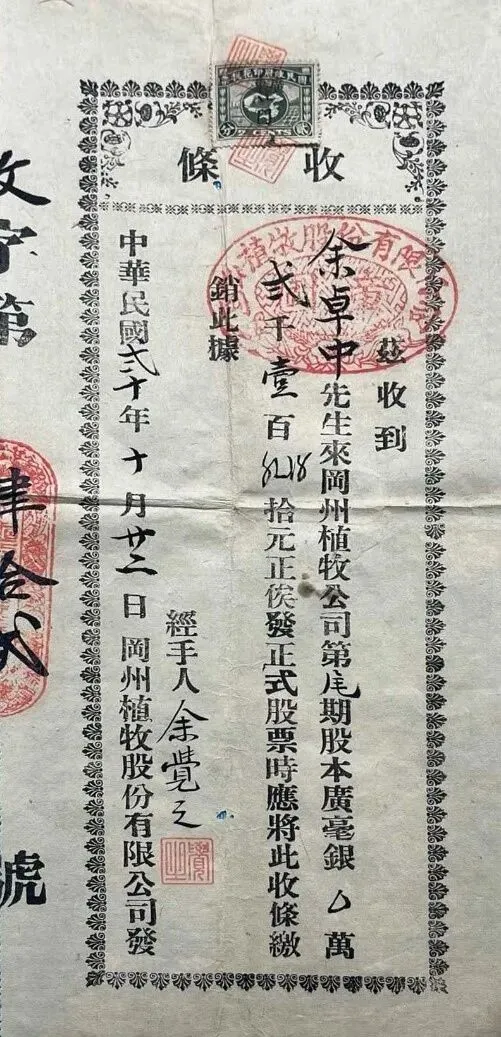 收條
茲收到
余卓中先生來岡州植牧公司第尾期股本廣毫銀萬
弍千壹百拾元正俟發正式股票時應將此收條繳
銷此據
經手人余覺之
中華民國弍十年十月廿三日岡州植牧股份有限公司發
字第肆拾弍號
植牧股份有限